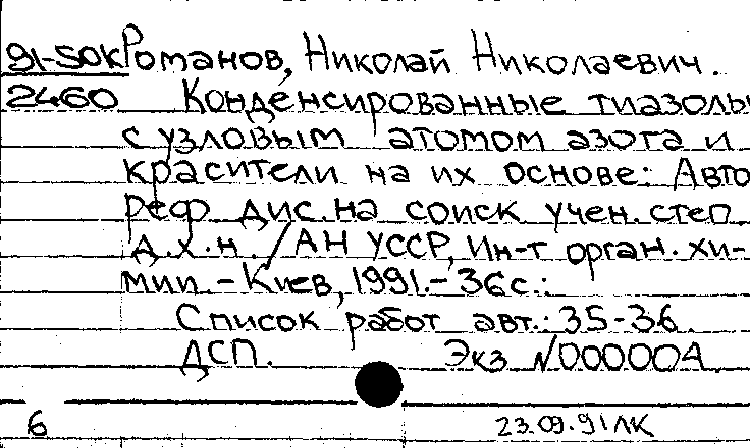 91-50К Романов, Николай Николаевич.
2460 Конденсированные тиазолы
с узловым атомом азота и
красители на их основе: Авто
реф. дис. на соиск учен. степ.
д.х.н. / АН УССР, Ин-т орган. хи-
мии. - Киев, 1991. - 36 с.:
Список работ авт.: 35-36.
ДСП. Экз N00000А
6 23.09.91 ЛК